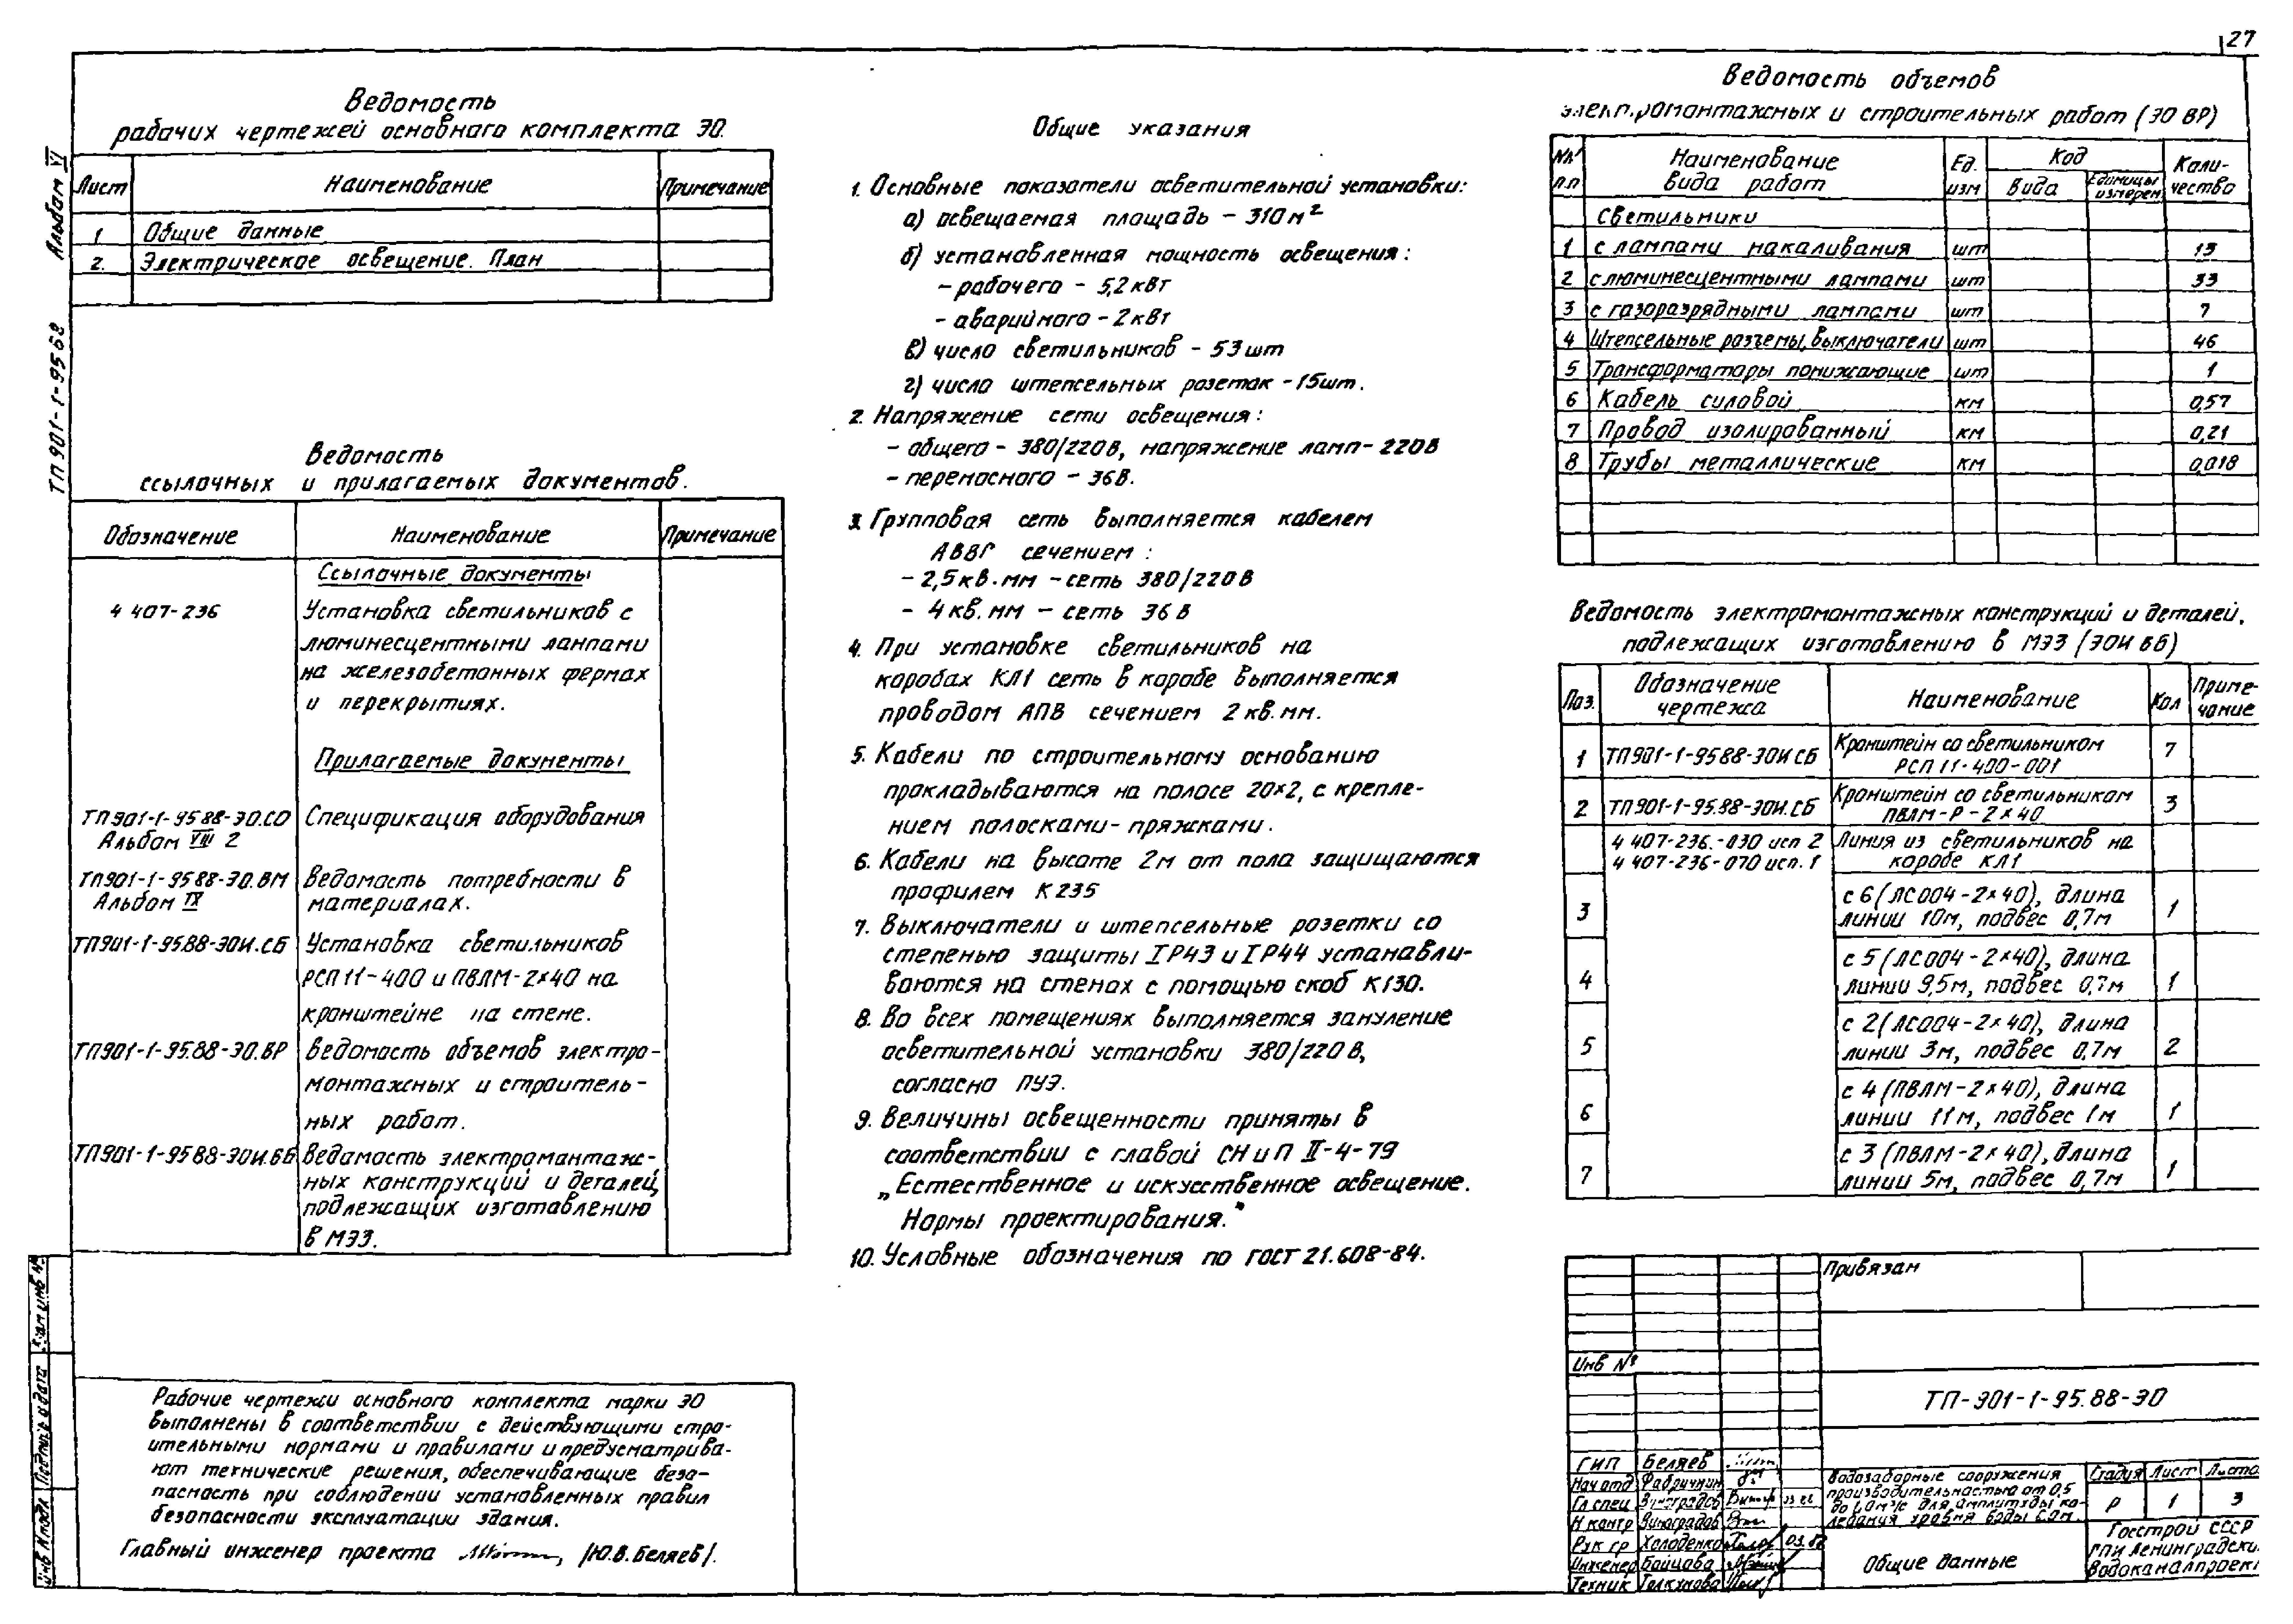 27
Альбом VI
ТП 901-1-95.88
Ведомость
рабочих чертежей основного комплекта ЭО.
Лист Наименование Примечание
1 Общие данные
2. Электрическое освещение. План
Ведомость
ссылочных и прилагаемых документов.
Обозначение Наименование Примечание
Ссылочные документы
4 407-236 Установка светильников с
люминесцентными лампами
на железобетонных фермах
и перекрытиях.
Прилагаемые документы
ТП901-1-95 88-ЭО.СО Спецификация оборудования
Альбом VIII 2
ТП901-1-95 88-ЭО.ВМ Ведомость потребности в
Альбом IX материалах.
ТП901-1-95.88-ЭОИ.СБ Установка светильников
РСП 11-400 и ПВЛМ-2×40 на
кронштейне на стене.
ТП901-1-95.88-ЭО.ВР Ведомость объемов электро-
монтажных и строитель-
ных работ.
ТП901-1-95 88-ЭОИ.ВБ Ведомость электромонтаж-
ных конструкций и деталей,
подлежащих изготовлению
в МЭЗ.
Рабочие чертежи основного комплекта марки ЭО
выполнены в соответствии с действующими стро-
ительными нормами и правилами и предусматрива-
ют технические решения, обеспечивающие безо-
пасность при соблюдении установленных правил
безопасности эксплуатации здания.
Главный инженер проекта /Ю.В.Беляев/.
Общие указания
1. Основные показатели осветительной установки:
а) освещаемая площадь - 310 м²
б) установленная мощность освещения:
- рабочего - 5,2 кВт
- аварийного - 2 кВт
в) число светильников - 53 шт
г) число штепсельных розеток - 15 шт.
2. Напряжение сети освещения:
- общего - 380/220 В, напряжение ламп - 220 В
- переносного - 36 В.
3. Групповая сеть выполняется кабелем
АВВГ сечением:
- 2,5 кв.мм - сеть 380/220 В
- 4 кв.мм - сеть 36 В
4. При установке светильников на
коробах КЛ1 сеть в коробе выполняется
проводом АПВ сечением 2 кв.мм.
5. Кабели по строительному основанию
прокладываются на полосе 20×2, с крепле-
нием полосками-пряжками.
6. Кабели на высоте 2м от пола защищаются
профилем К 235
7. Выключатели и штепсельные розетки со
степенью защиты IP43 и IP44 устанавли-
ваются на стенах с помощью скоб К130.
8. Во всех помещениях выполняется зануление
осветительной установки 380/220 В,
согласно ПУЭ.
9. Величины освещенности приняты в
соответствии с главой СН и П II-4-79
„Естественное и искусственное освещение.
Нормы проектирования."
10. Условные обозначения по ГОСТ 21.608-84.
Ведомость объемов
электромонтажных и строительных работ (ЭО ВР)
№№ п.п Наименование вида работ Ед. изм Код Вида Единицы измерен. Коли-чество
Светильники
1 с лампами накаливания шт 13
2 с люминесцентными лампами шт 33
3 с газоразрядными лампами шт 7
4 Штепсельные разъемы, выключатели шт 46
5 Трансформаторы понижающие шт 1
6 Кабель силовой км 0,57
7 Провод изолированный км 0,21
8 Трубы металлические км 0,018
Ведомость электромонтажных конструкций и деталей,
подлежащих изготовлению в МЭЗ (ЭОИ ВБ)
Поз. Обозначение чертежа Наименование Кол Приме-чание
1 ТП901-1-95 88-ЭОИ СБ Кронштейн со светильником 7
РСП 11-400-001
2 ТП901-1-95.88-ЭОИ.СБ Кронштейн со светильником 3
ПВЛМ-Р-2×40
4 407-236.-030 исп 2 Линия из светильников на
4 407-236-070 исп. 1 коробе КЛ1
3 с 6 (ЛСО04-2×40), длина
линии 10м, подвес 0,7м 1
4 с 5 (ЛСО04-2×40), длина
линии 9,5м, подвес 0,7м 1
5 с 2 (ЛСО04-2×40), длина
линии 3м, подвес 0,7м 2
6 с 4 (ПВЛМ-2×40), длина
линии 11м, подвес 1м 1
7 с 3 (ПВЛМ-2×40), длина
линии 5м, подвес 0,7м 1
Привязан
Инв №
ТП-901-1-95.88-ЭО
ГИП Беляев
Нач отд Фабричнин
Гл спец Виноградов
Н контр Виноградов
Рук гр Холоденко 03.88
Инженер Бойцова
Техник Толкунова
Водозаборные сооружения
производительностью от 0,5
до 1,0м³/с для амплитуды ко-
лебания уровня воды 6,0м.
Стадия Лист Листо
Р 1 3
Общие данные
Госстрой СССР
ГПИ Ленинградски
Водоканалпроект
Взам инв №
Подпись и дата
Инв № подл